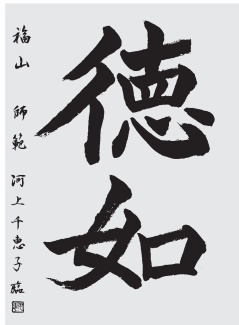 徳如
福山 師範 河上千恵子臨